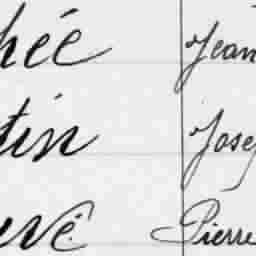 hée Jean
tin Jose
uvé Pierre